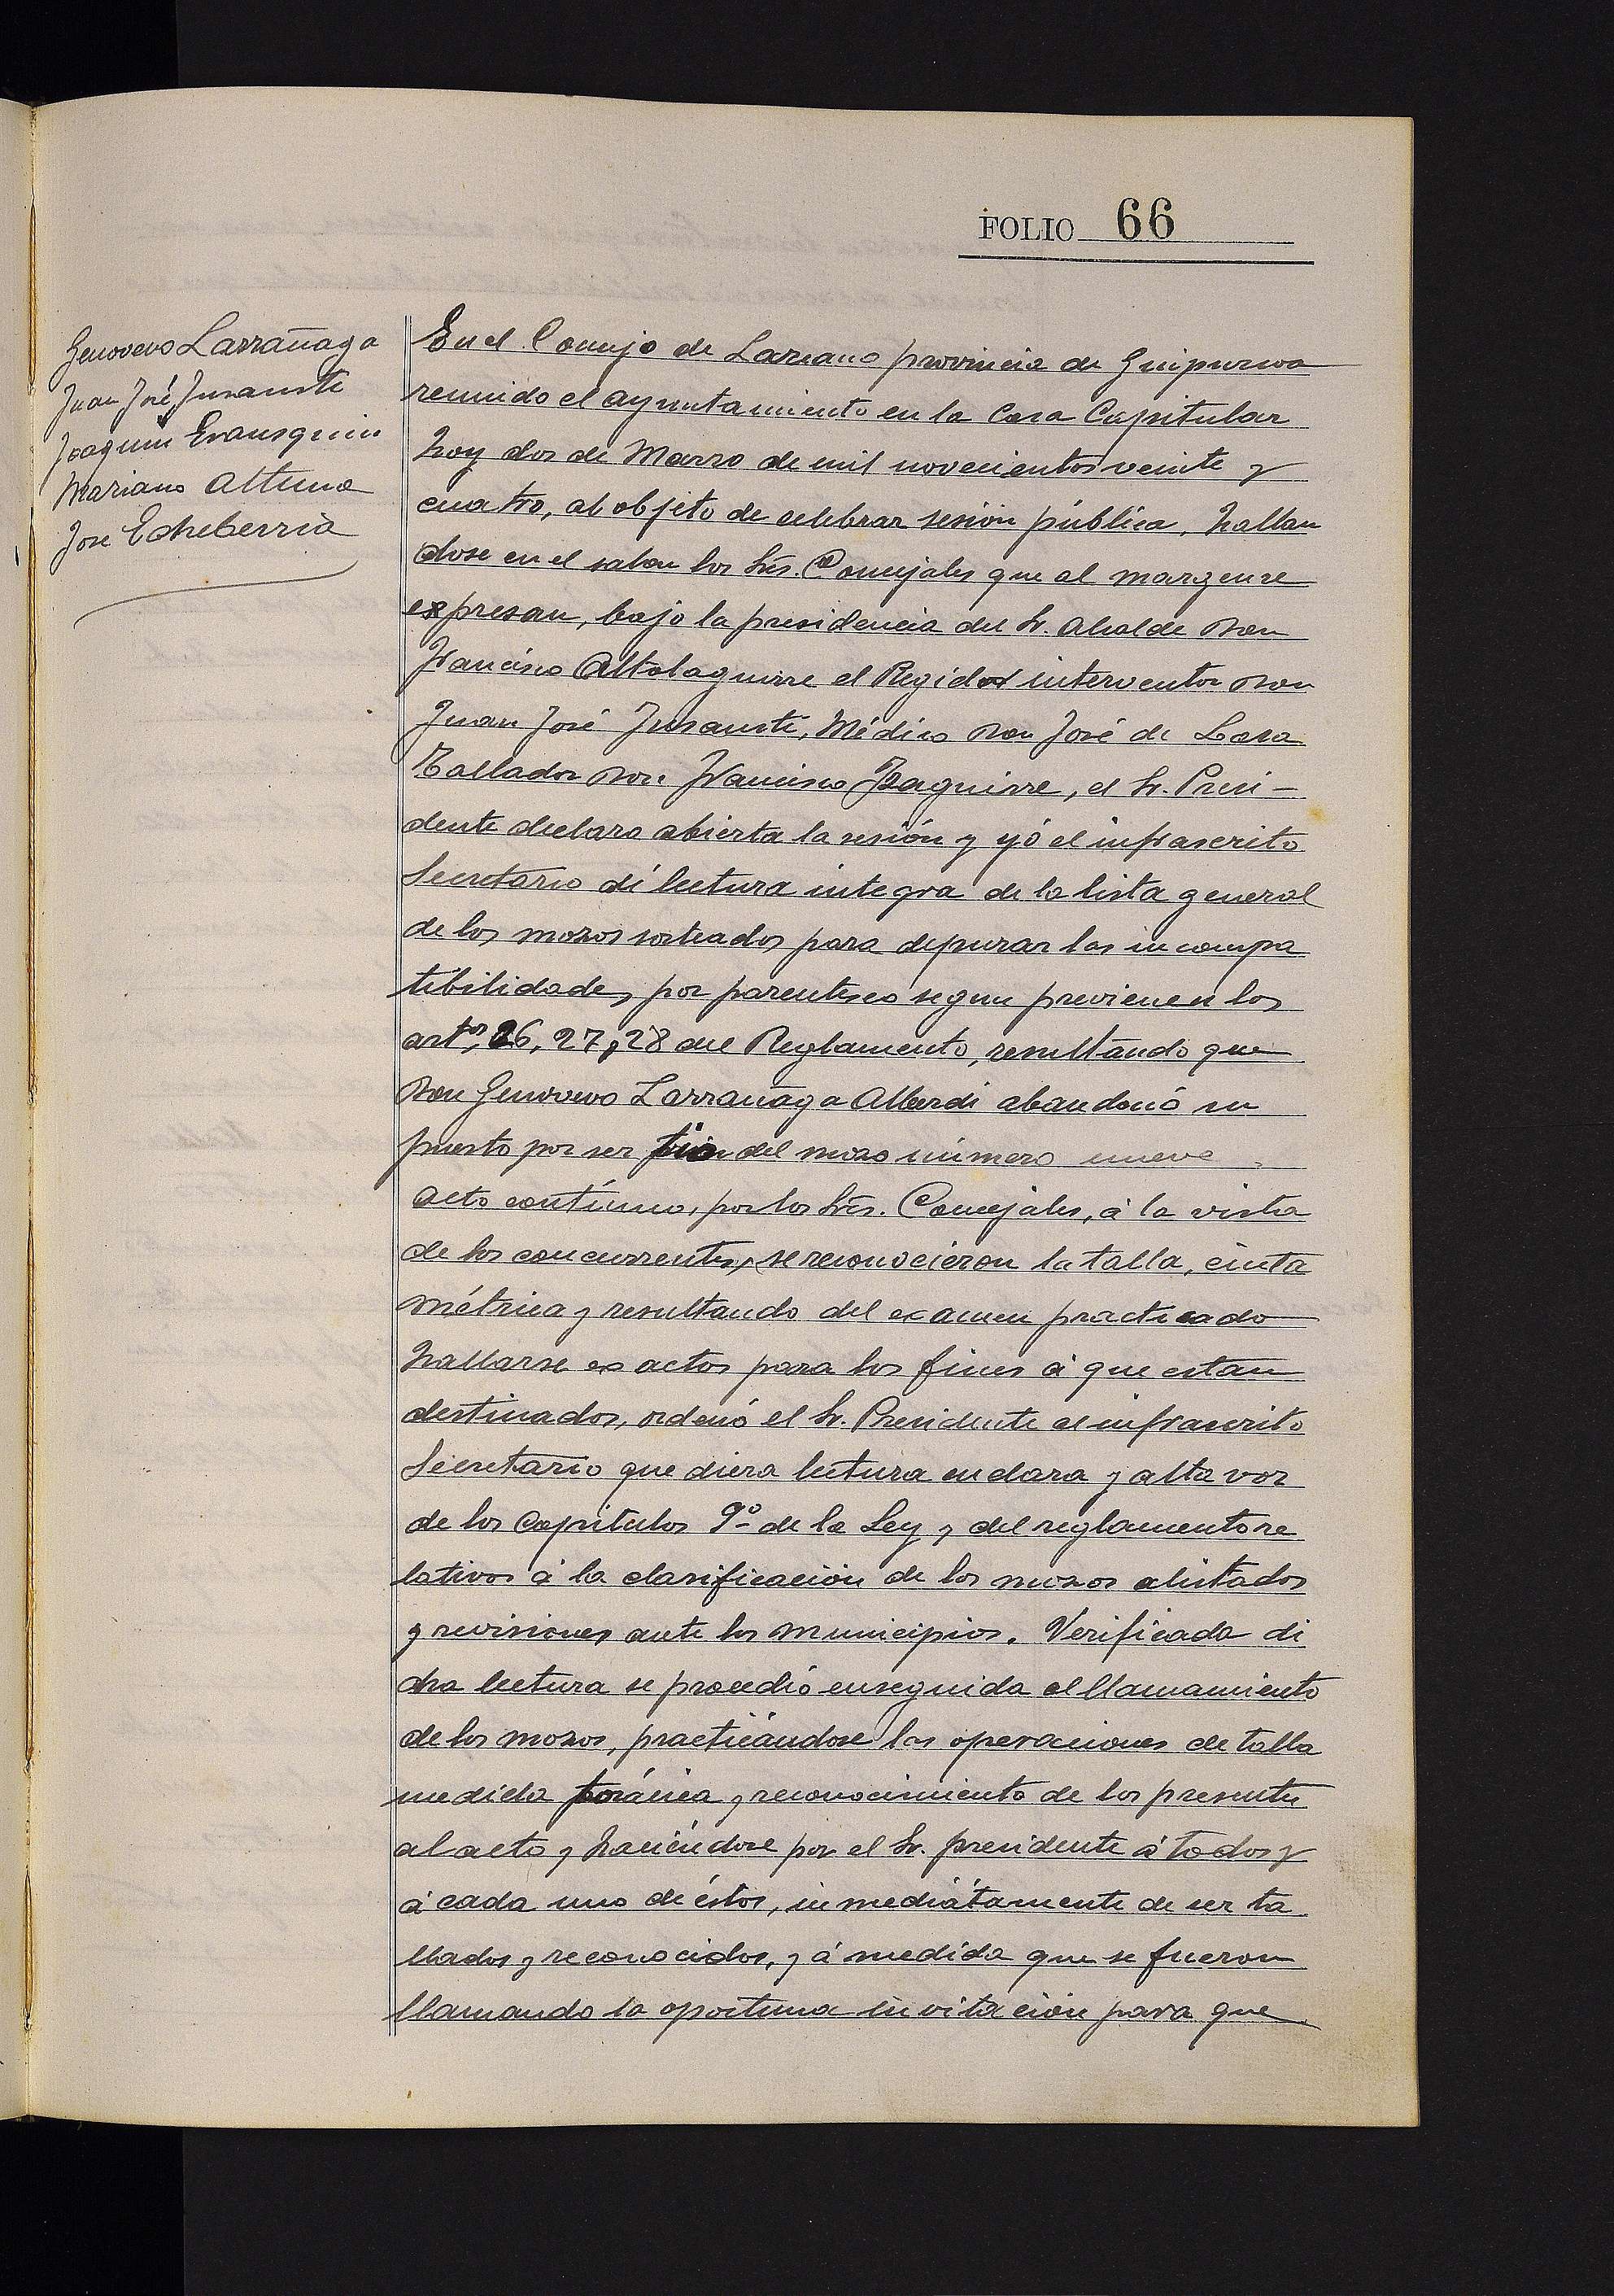 FOLIO 66
Genovevo Larrañaga
Juan José Jusausti
Joaquin Erausquin
Mariano Altuna
Jose Echeberria
En el Concejo de Lazcano provincia de Guipuzcoa
reunido el ayuntamiento en la Casa Capitular
hoy dos de Marzo de mil novecientos veinte y
cuatro, al objeto de celebrar sesión pública, hallan
dose en el salon los Srs. Concejales que al margen se
expresan, bajo la presidencia del Sr. Alcalde Don
Francisco Altolaguirre el Regidor interventor Don
Juan José Jusausti, Médico Don José de Lasa
Tallador Don Francisco Izaguirre, el Sr. Presi-
dente declaro abierta la sesión y yó el infrascrito
Secretario dí lectura integra de la lista general
de los mozos sorteados para depurar las incompa
tibilidades por parentesco segun previenen los
artos, 26, 27, 28 del Reglamento, resultando que
Don Genovevo Larrañaga Alberdi abandonó su
puesto por ser tio del mozo número nueve.
Acto contínuo, por los Srs. Concejales, á la vista
de los concurrentes, se reconocieron la talla, cinta
métrica y resultando del examen practicado
hallarse exactos para los fines á que estan
destinados, ordenó el Sr. Presidente al infrascrito
Secretario que diera lectura en clara y alta voz
de los Capitulos 9º de la Ley y del reglamento re
lativos á la clasificación de los mozos alistados
y revisiones ante los municipios. Verificada di
cha lectura se procedió enseguida al llamamiento
de los mozos, practicándose las operaciones de talla
medida torácica y reconocimiento de los presentes
al acto y haciéndose por el Sr. presidente á todos y
á cada uno de éstos, inmediátamente de ser ta
llados y reconocidos, y á medida que se fueron
llamando la oportuna invitación para que